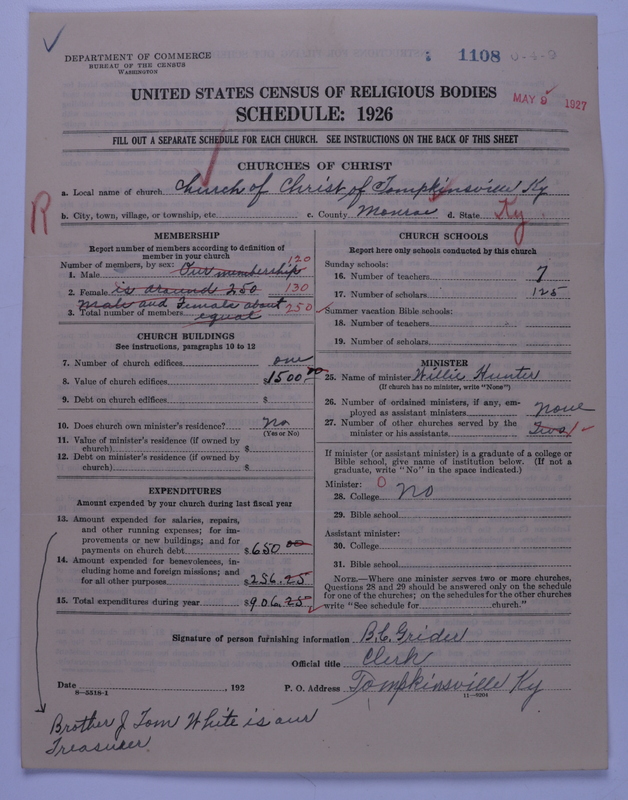 DEPARTMENT OF COMMERCE
BUREAU OF THE CENSUS
WASHINGTON
1108
UNITED STATES CENSUS OF RELIGIOUS BODIES
MAY 9 1927
SCHEDULE: 1926
FILL OUT A SEPARATE SCHEDULE FOR EACH CHURCH. SEE INSTRUCTIONS ON THE BACK OF THIS SHEET
CHURCHES OF CHRIST
a. Local name of church Church of Christ of Tompkinsville Ky
R
b. City, town, village, or township, etc. c. County Monroe d. State Ky.
MEMBERSHIP
Report number of members according to definition of
member in your church
Number of members, by sex: 120
1. Male Our membership
2. Female is around 250 130
Male and Female about
3. Total number of members 250
equal
CHURCH BUILDINGS
See instructions, paragraphs 10 to 12
7. Number of church edifices one
8. Value of church edifices $1500 00
9. Debt on church edifices $
10. Does church own minister's residence? No
(Yes or No)
11. Value of minister's residence (if owned by
church) $
12. Debt on minister's residence (if owned by
church) $
EXPENDITURES
Amount expended by your church during last fiscal year
13. Amount expended for salaries, repairs,
and other running expenses; for im-
provements or new buildings; and for
payments on church debt $650 00
14. Amount expended for benevolences, in-
cluding home and foreign missions; and
for all other purposes $256.25
15. Total expenditures during year $906.25
CHURCH SCHOOLS
Report here only schools conducted by this church
Sunday schools:
16. Number of teachers 7
17. Number of scholars 125
Summer vacation Bible schools:
18. Number of teachers
19. Number of scholars
MINISTER
25. Name of minister Willie Hunter
(If church has no minister, write "None")
26. Number of ordained ministers, if any, em-
ployed as assistant ministers none
27. Number of other churches served by the
minister or his assistants Two
If minister (or assistant minister) is a graduate of a college or
Bible school, give name of institution below. (If not a
graduate, write "No" in the space indicated.)
Minister: 0
28. College No
29. Bible school
Assistant minister:
30. College
31. Bible school
NOTE.—Where one minister serves two or more churches,
Questions 28 and 29 should be answered only on the schedule
for one of the churches; on the schedules for the other churches
write "See schedule for church."
Signature of person furnishing information B.C. Grider
Official title Clerk
Date , 192 P. O. Address Tompkinsville Ky
8—5318-1 11—9204
Brother J Tom White is our
Treasurer.